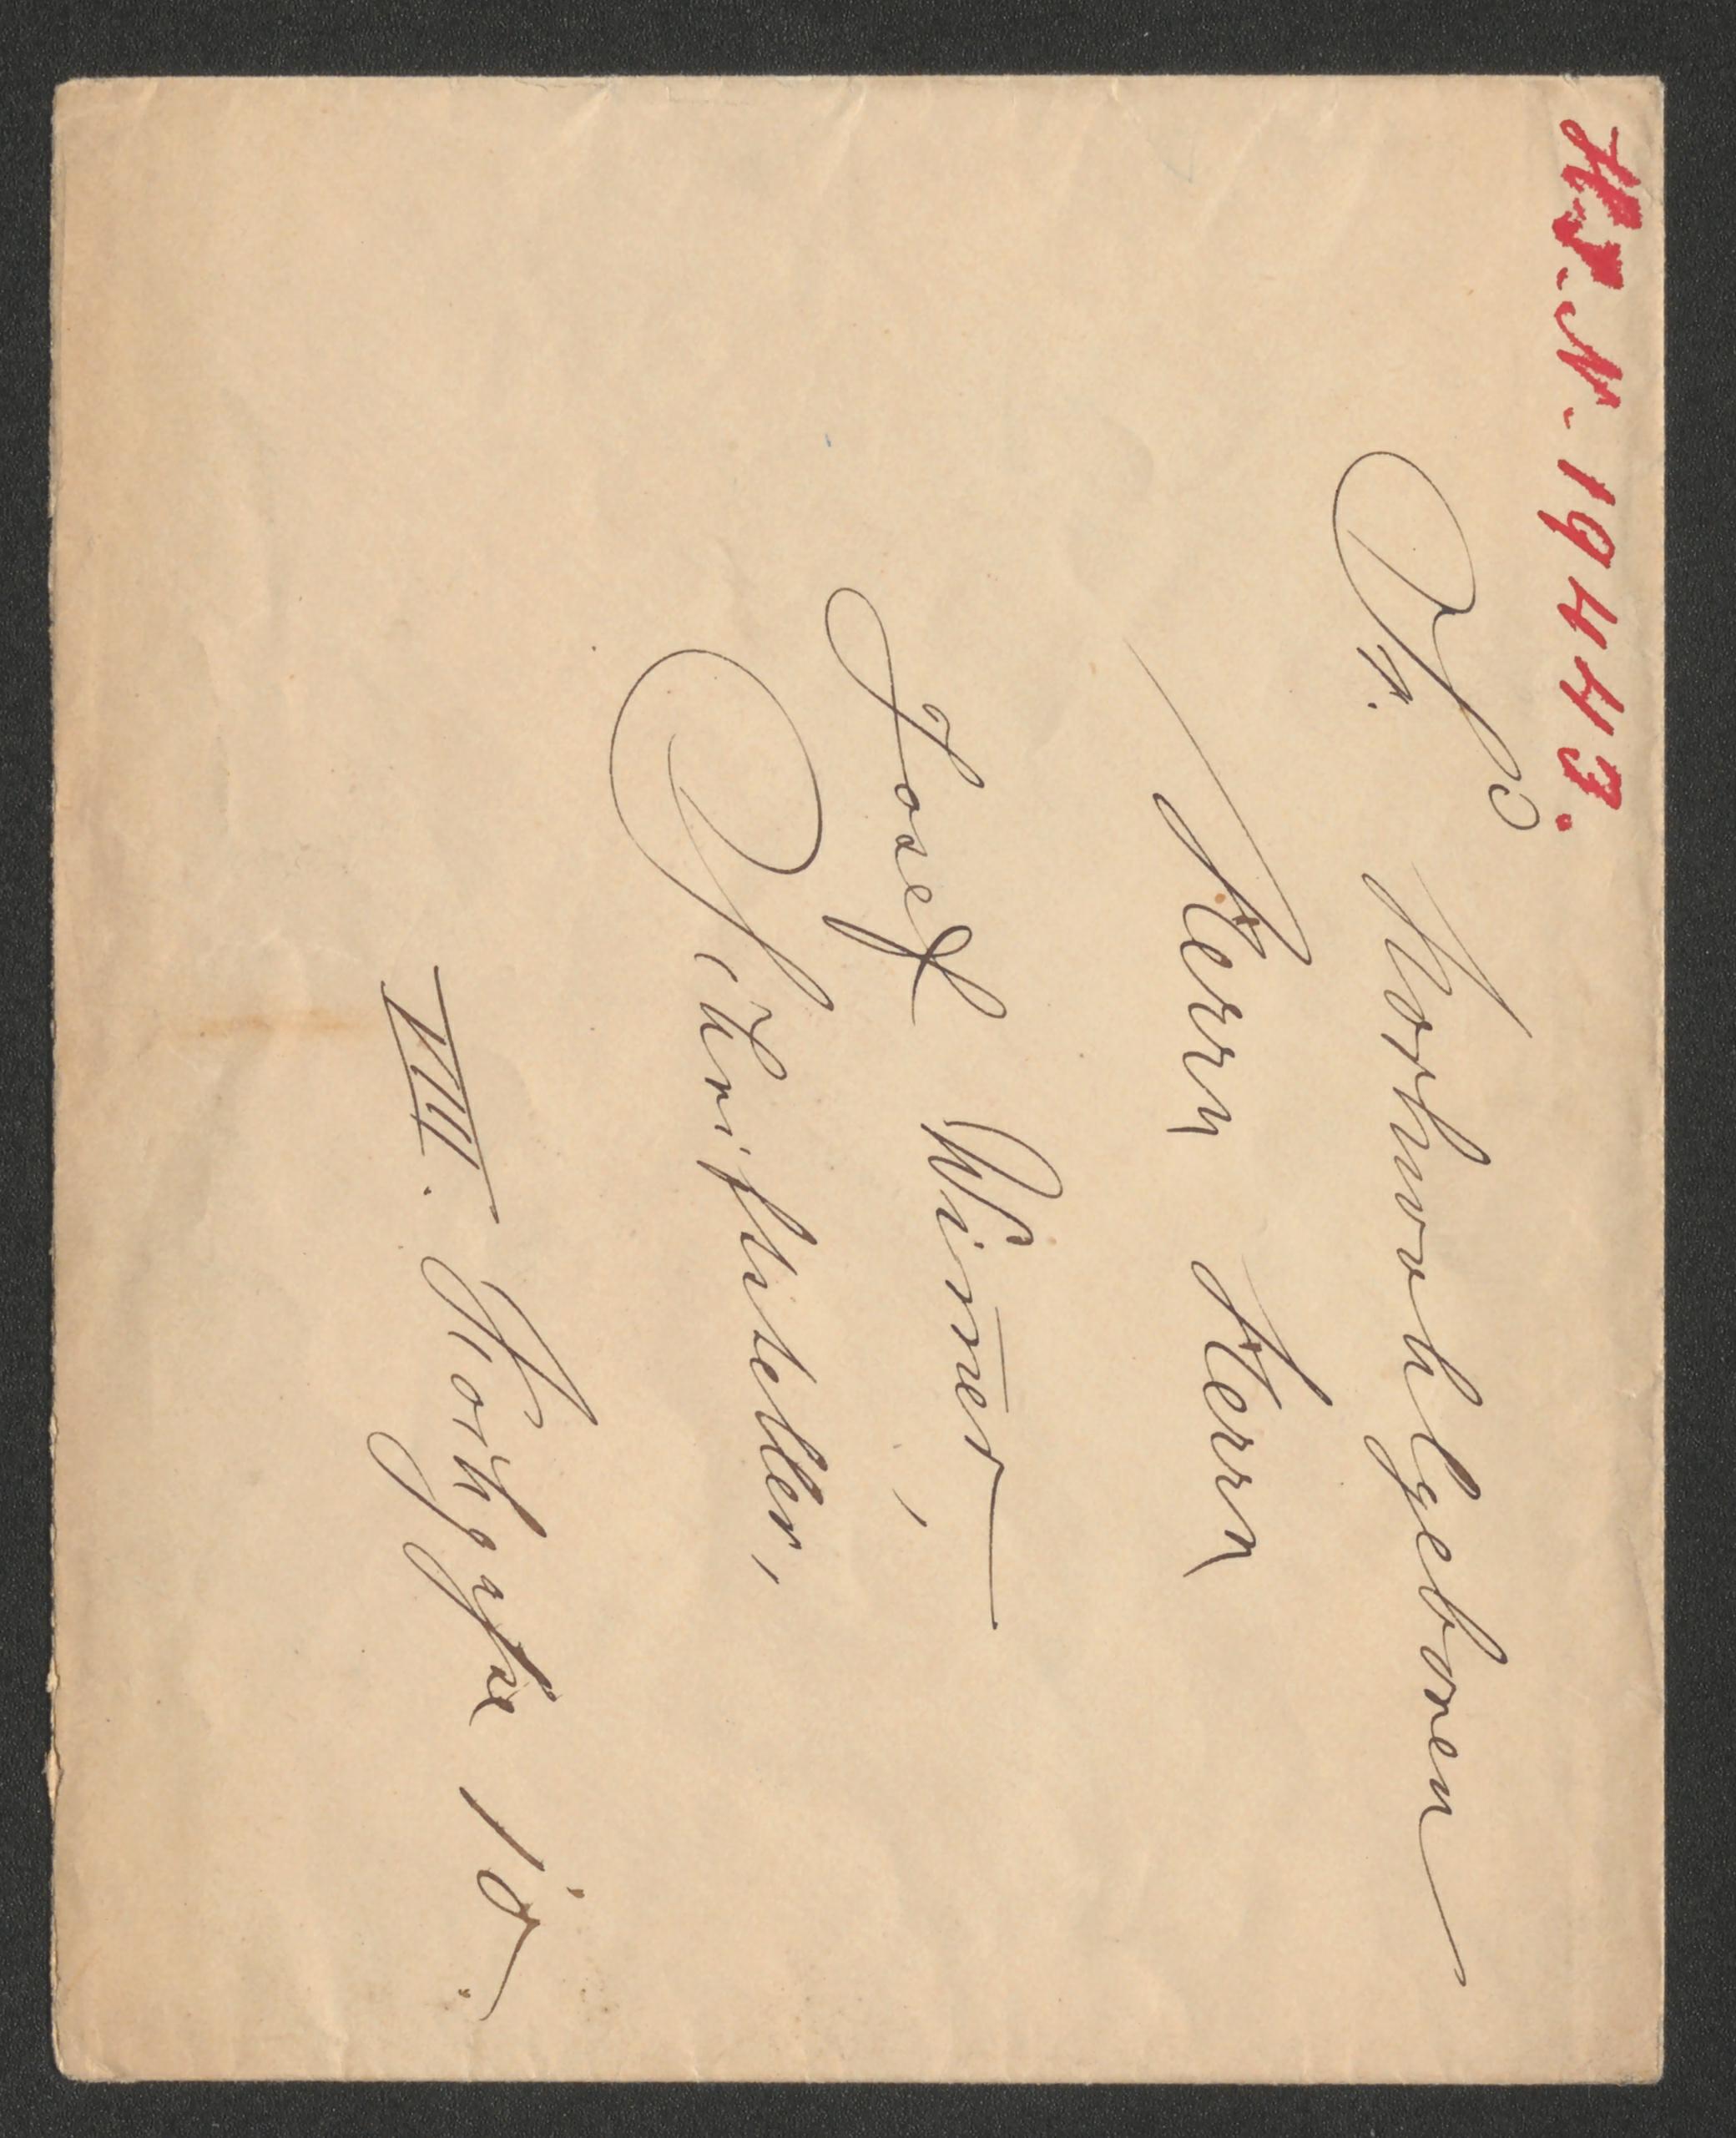 H.I.N.-19443.
Sr. Hochwohlgeboren
Herrn Herrn
Josef Wim̅er,
Schriftsteller,
VIII. Kochgasse 15.